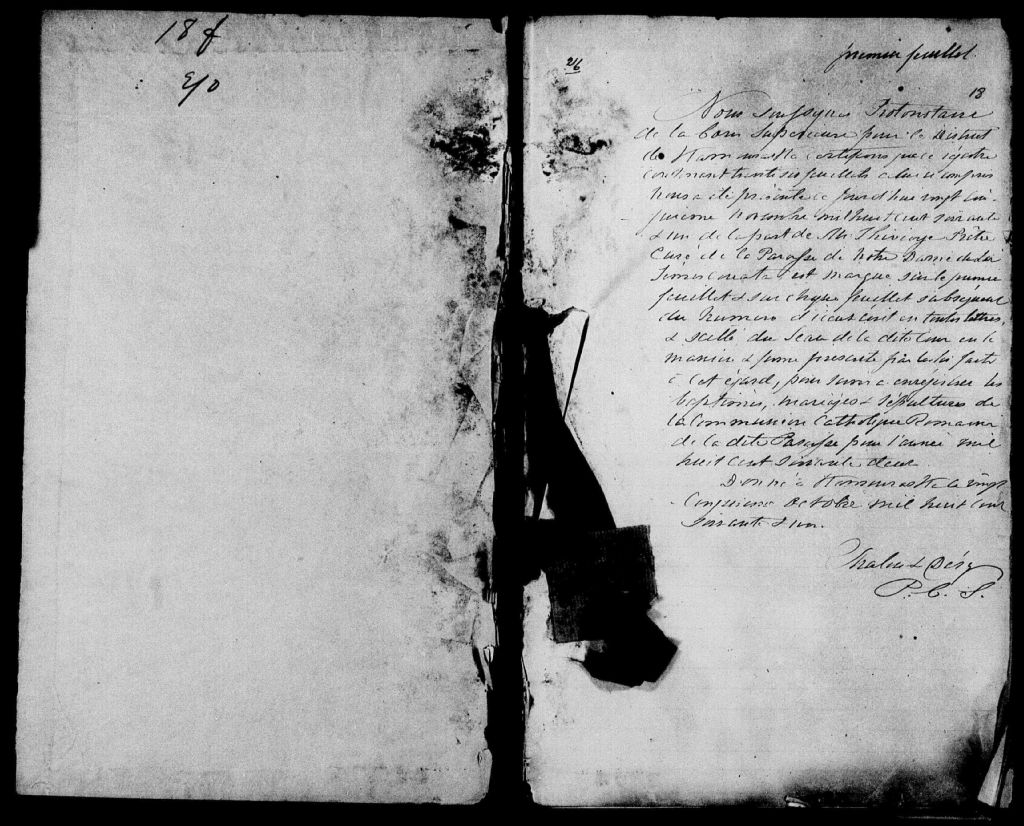 18 f
premier feuillet
18
Nous Soussignés Protonotaire
de la Cour Supérieure pour le District
de Kamouraska certifions que ce régistre
contenant trente six feuillets celui ci compris
nous a été présenté ce jourd'hui vingt cin-
quième novembre mil huit cent soixante
& un de la part de Mr Prêtre
Curé de la Paroisse de Notre Dame du Lac
Témiscouata est marqué sur le premier
feuillet & sur chaque feuillet subséquent
du numero d'iceux écrit en toutes lettres,
& scellé du Sceau de la dite Cour en la
manière & forme présenté par la loi faite
à cet égard, pour servir a enrégistrer les
baptêmes, mariages & Sépultures de
la Communion Catholique Romaine
de la dite Paroisse pour l'année mil
huit cent soixante deux
Donné à Kamouraska le vingt
Cinquieme Octobre mil huit cent
soixante & un.
P. C. S.